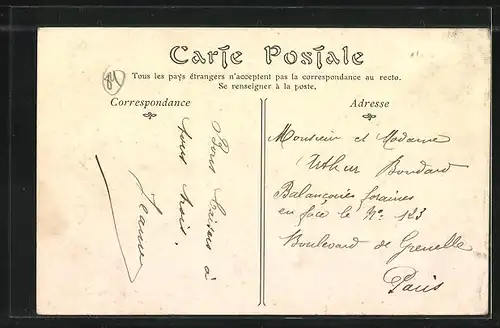 Carte Postale
Tous les pays étrangers n'acceptent pas la correspondance au recto.
Se renseigner à la poste.
Correspondance
Adresse
84
Bons baisers à
tous trois.
Jeanne
Monsieur et Madame
Arthur Boudard
Balançoires foraines
en face le No 123
Boulevard de Grenelle
Paris